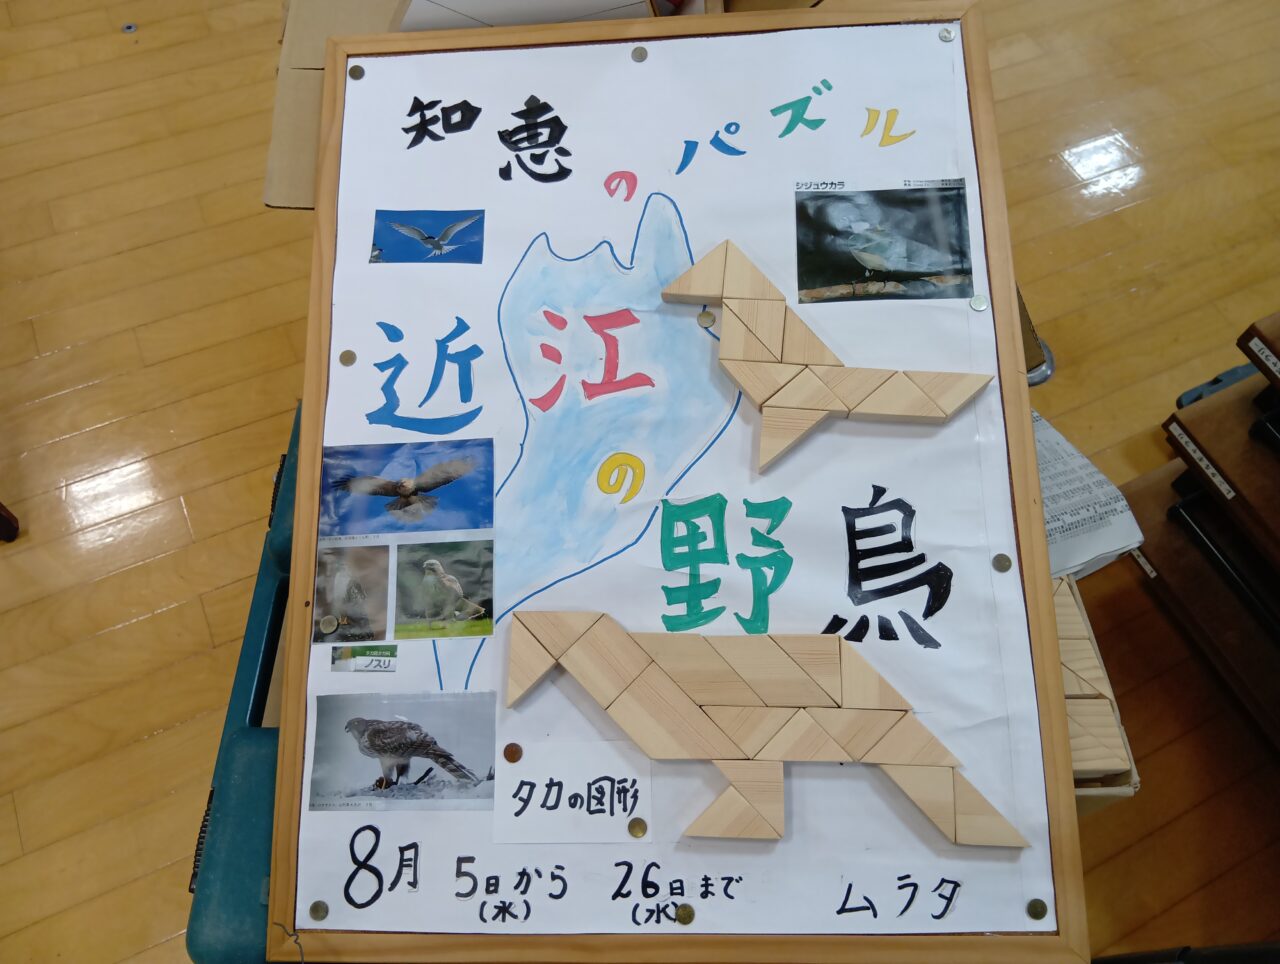 知恵のパズル
シジュウカラ
近江の
野鳥
ノスリ
タカの図形
8月 5日から 26日まで
(水) (水)
ムラタ